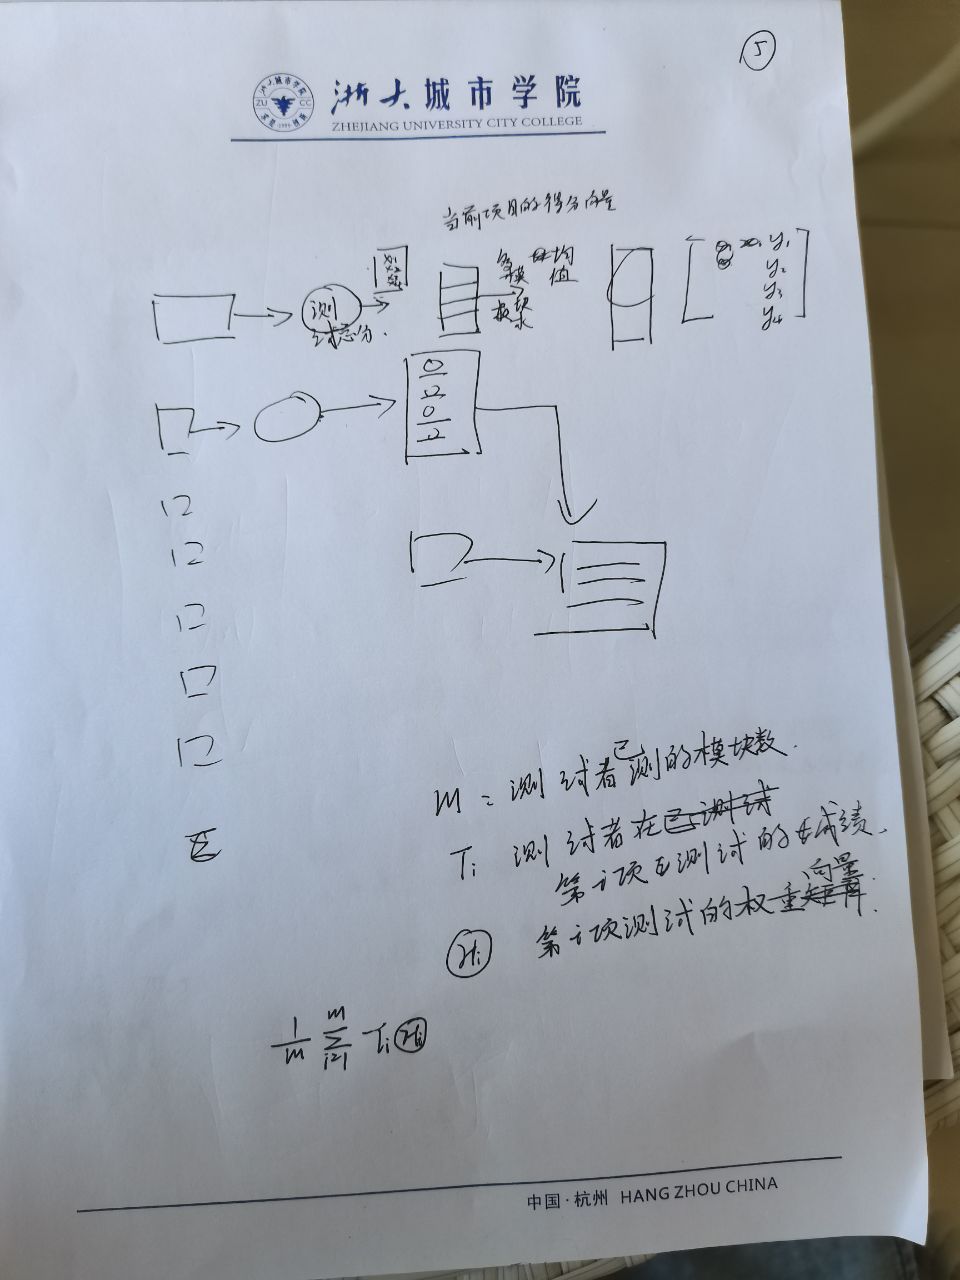 5
浙大城市学院
ZHEJIANG UNIVERSITY CITY COLLEGE
当前项目的得分向量
测
试总分.
均
值
y₁
y₂
y₃
y₄
m = 测试者已测的模块数.
Tᵢ 测试者在已测试
第i项已测试的成绩.
向量
Hᵢ 第i项测试的权重矩阵.
1/m ∑ᵢ₌₁ᵐ Tᵢ Hᵢ
中国·杭州 HANG ZHOU CHINA